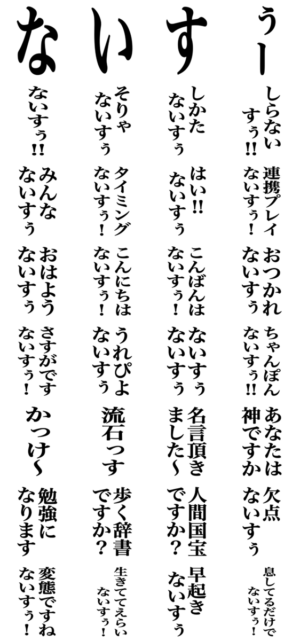 な
い
す
ぅー
ないすぅ!!
そりゃ
ないすぅ
しかた
ないすぅ
しらない
すぅ!!
みんな
ないすぅ
タイミング
ないすぅ!
はい!!
ないすぅ
連携プレイ
ないすぅ!
おはよう
ないすぅ
こんにちは
ないすぅ!
こんばんは
ないすぅ!
おつかれ
ないすぅ
さすがです
ないすぅ!
うれぴよ
ないすぅ
ないすぅ
ないすぅ
ちゃんぽん
ないすぅ!!
かっけ〜
流石っす
名言頂き
ました〜
あなたは
神ですか
勉強に
なります
歩く辞書
ですか?
人間国宝
ですか?
欠点
ないすぅ
変態ですね
ないすぅ!
生きててえらい
ないすぅ!
早起き
ないすぅ
息してるだけで
ないすぅ!